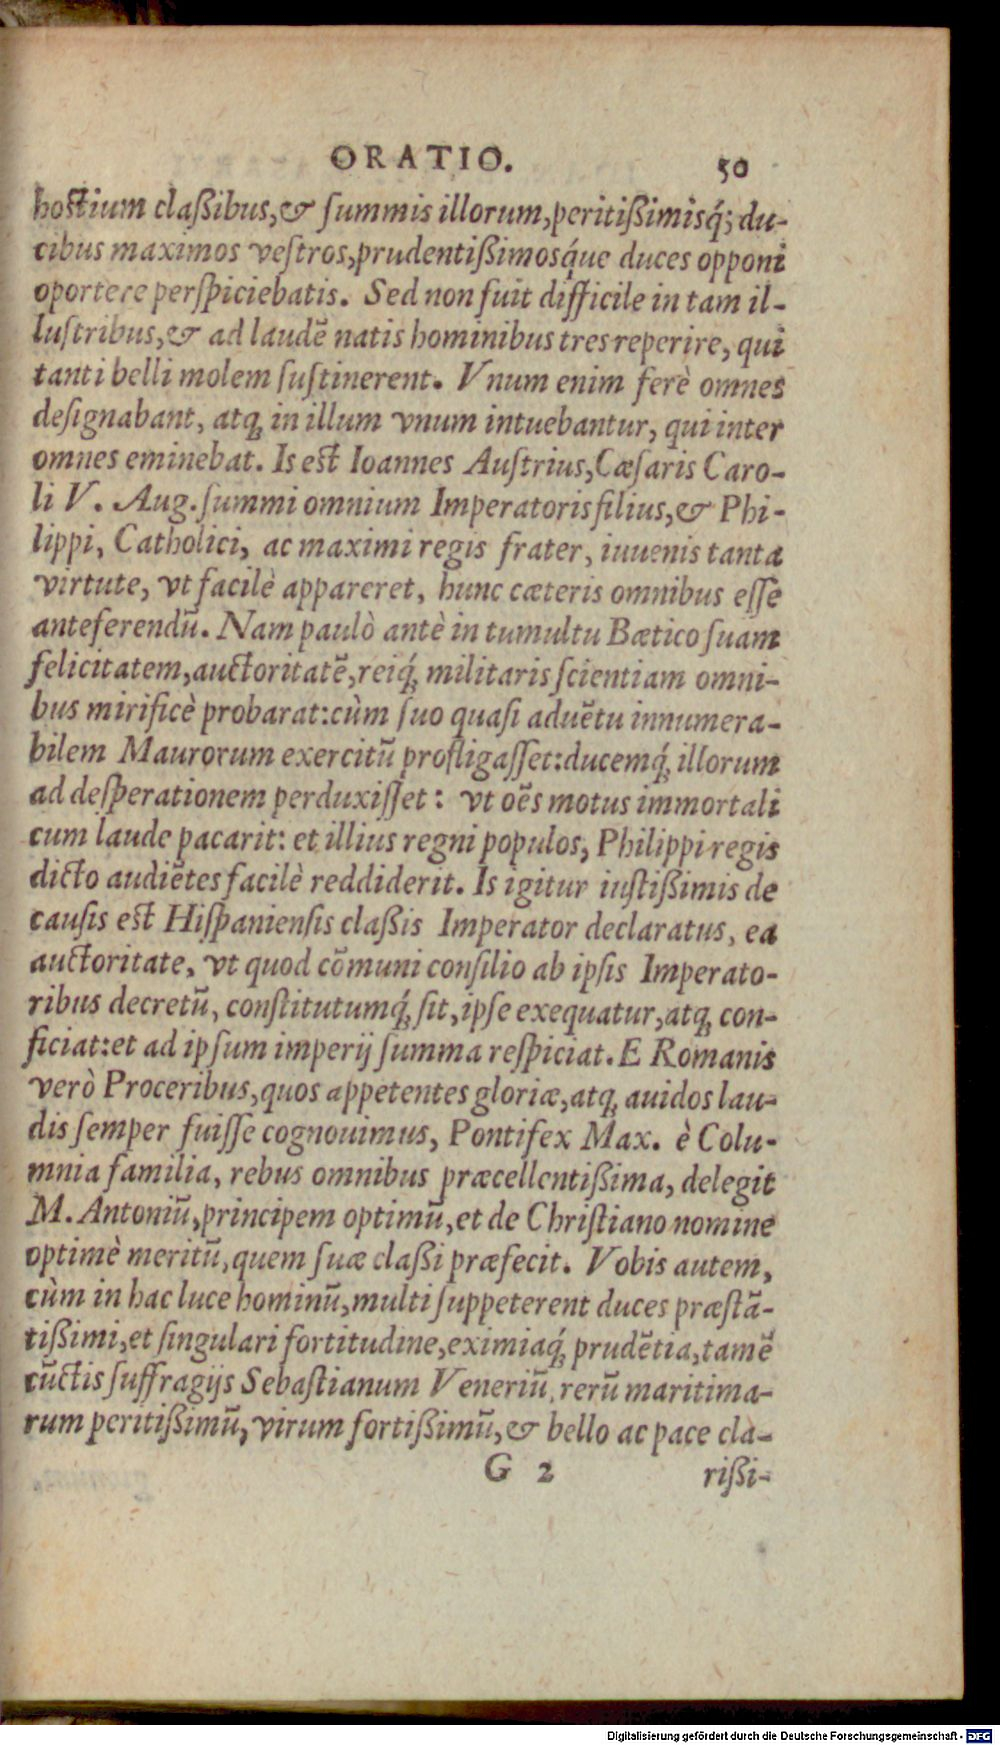 ORATIO. 50
hostium claßibus,& ſummis illorum,peritißimisq́; du-
cibus maximos veſtros,prudentißimosq́ue duces opponi
oportere perſpiciebatis. Sed non fuit difficile in tam il-
luſtribus,& ad laudē natis hominibus tres reperire, qui
tanti belli molem ſuſtinerent. Vnum enim ferè omnes
deſignabant, atq; in illum vnum intuebantur, qui inter
omnes eminebat. Is est Ioannes Auſtrius,Cæſaris Caro-
li V. Aug.ſummi omnium Imperatoris filius,& Phi-
lippi, Catholici, ac maximi regis frater, iuuenis tanta
virtute, vt facilè appareret, hunc cæteris omnibus eſſe
anteferendū. Nam paulò antè in tumultu Bætico ſuam
felicitatem,auctoritatē,reiq́; militaris ſcientiam omni-
bus mirificè probarat:cùm ſuo quaſi aduētu innumera-
bilem Maurorum exercitū profligaſſet:ducemq́; illorum
ad deſperationem perduxiſſet: vt oēs motus immortali
cum laude pacarit: et illius regni populos, Philippi regis
dicto audiētes facilè reddiderit. Is igitur iuſtißimis de
cauſis est Hiſpanienſis claßis Imperator declaratus, ea
auctoritate, vt quod cōmuni conſilio ab ipſis Imperato-
ribus decretū, conſtitutumq́; ſit,ipſe exequatur,atq; con-
ficiat:et ad ipſum imperij ſumma reſpiciat. E Romanis
verò Proceribus,quos appetentes gloriæ,atq; auidos lau-
dis ſemper fuiſſe cognouimus, Pontifex Max. è Colu-
mnia familia, rebus omnibus præcellentißima, delegit
M. Antoniū,principem optimū,et de Chriſtiano nomine
optimè meritū,quem ſuæ claßi præfecit. Vobis autem,
cùm in hac luce hominū,multi ſuppeterent duces præſtā-
tißimi,et ſingulari fortitudine,eximiaq́; prudētia,tamē
cūctis ſuffragijs Sebaſtianum Veneriū, rerū maritima-
rum peritißimū, virum fortißimū,& bello ac pace cla-
G 2 rißi-
Digitalisierung gefördert durch die Deutsche Forschungsgemeinschaft - DFG